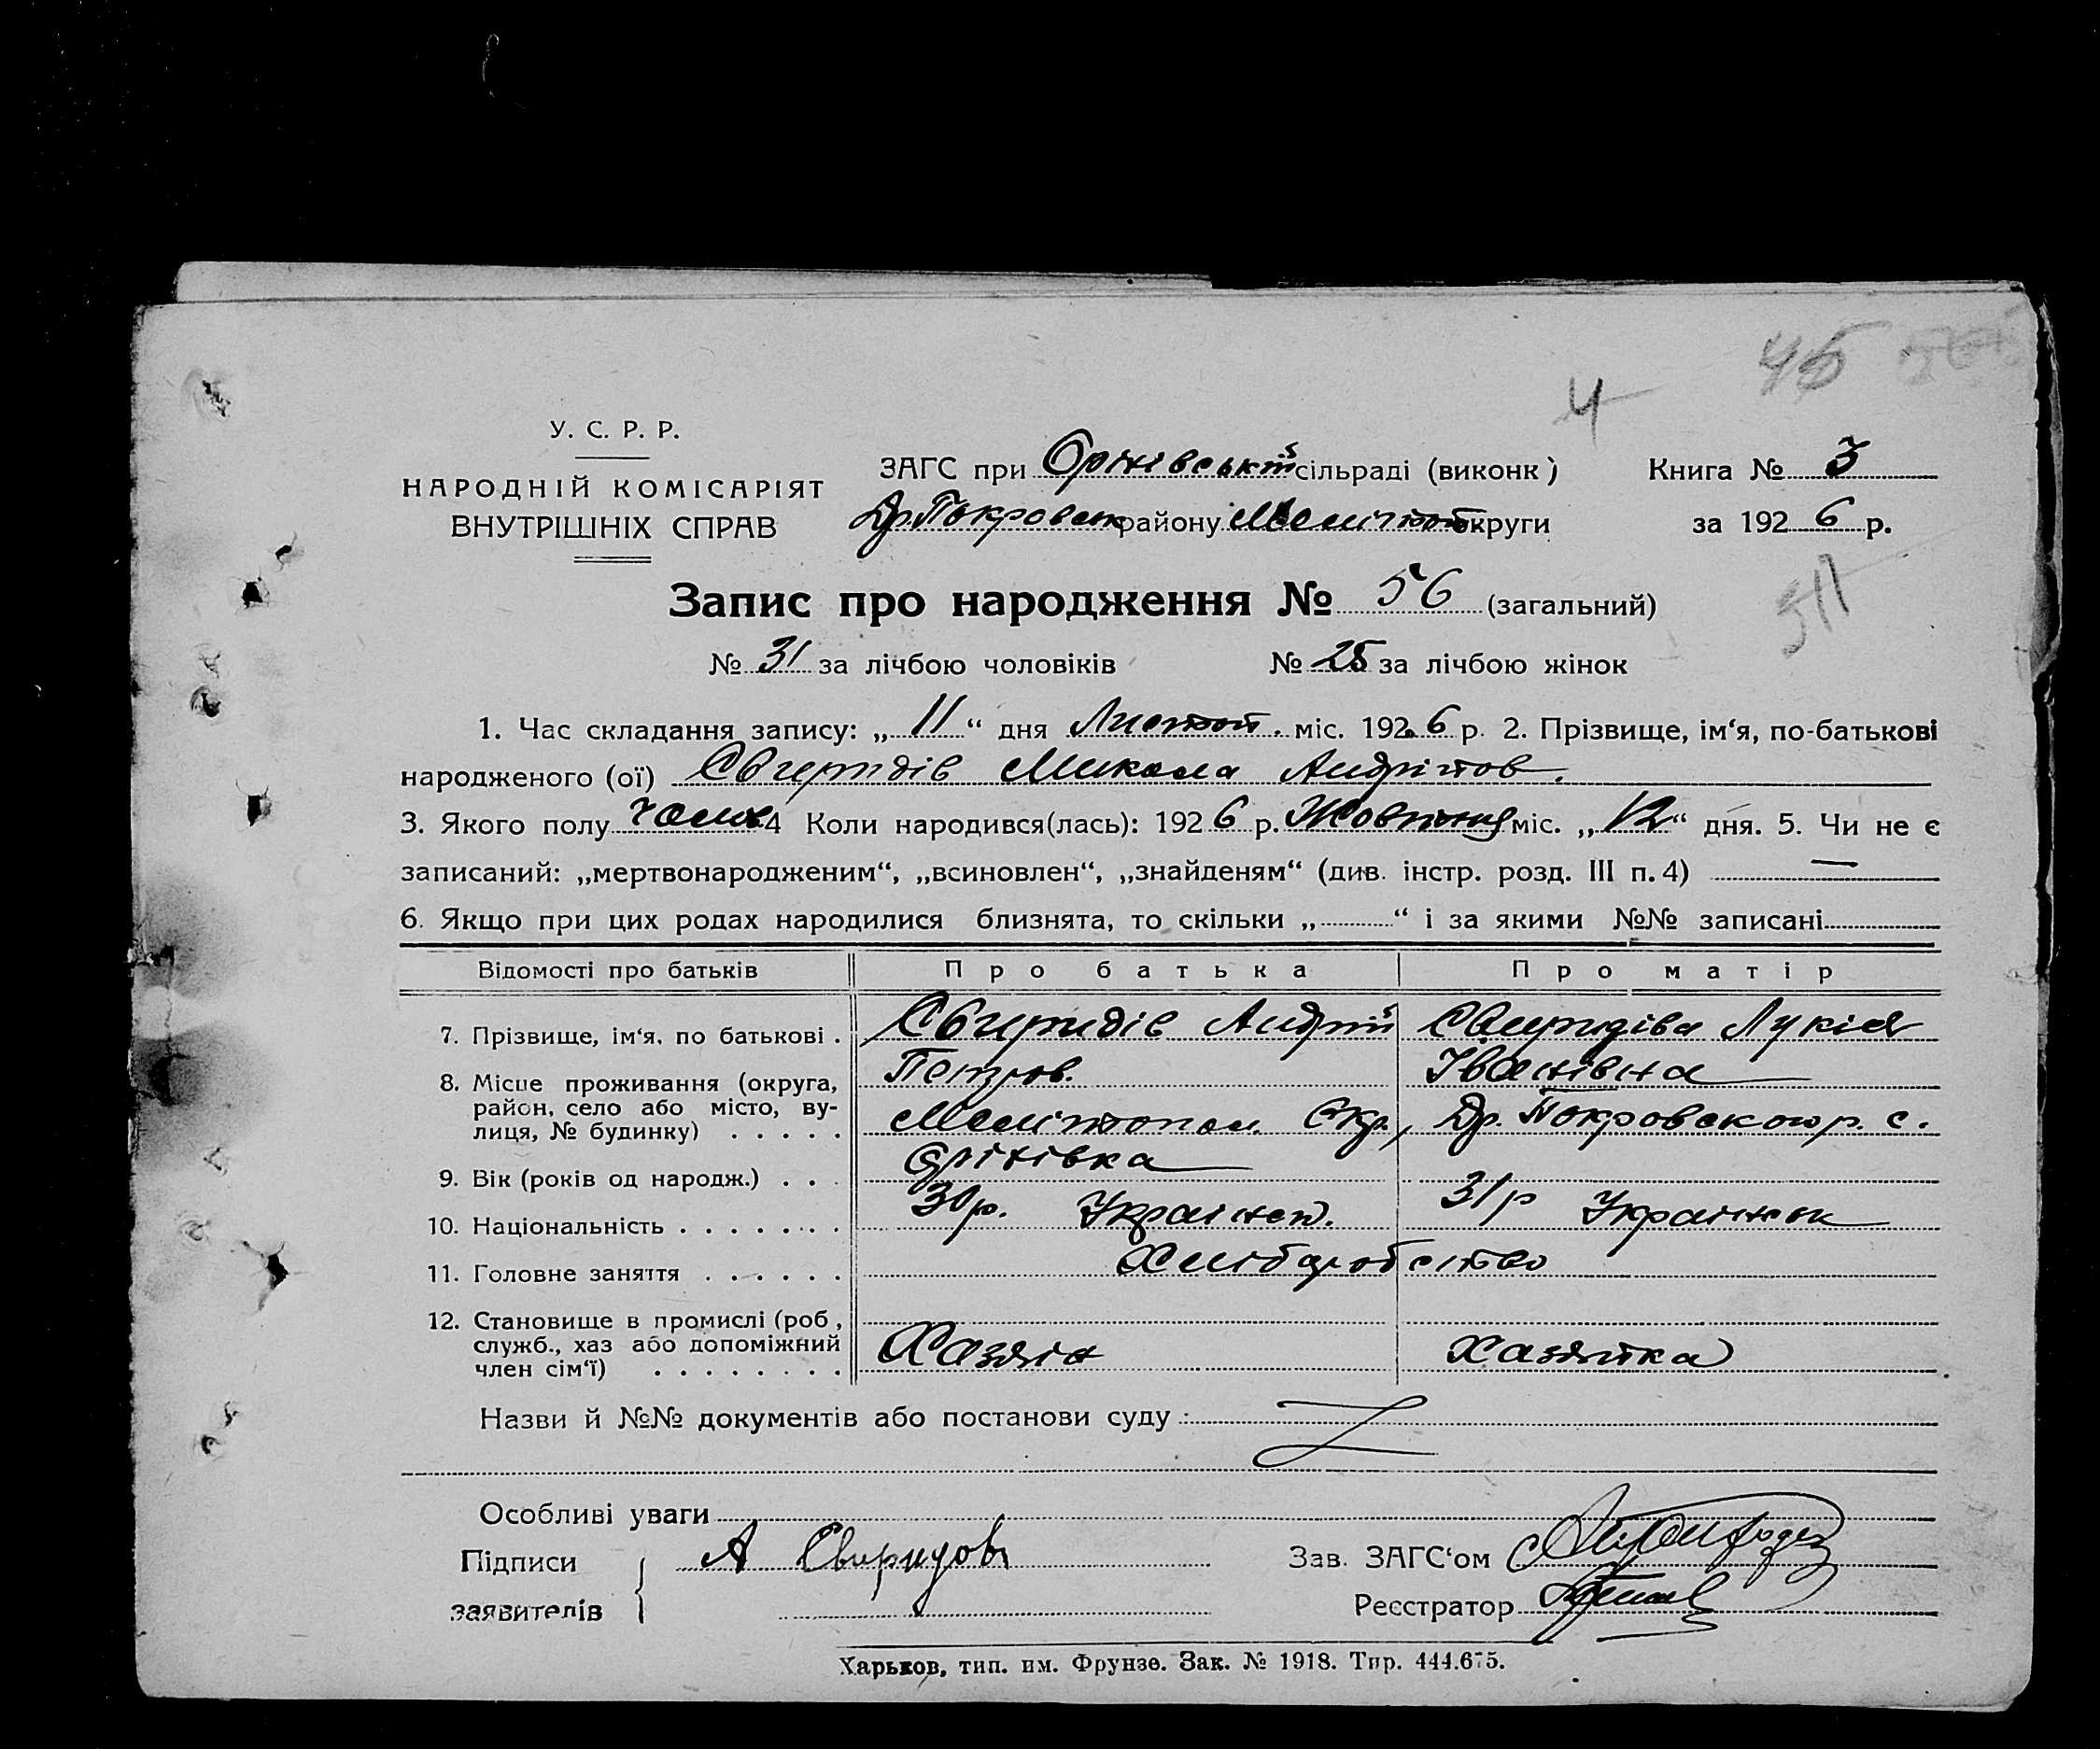 45
4
У. С. Р. Р.
НАРОДНІЙ КОМІСАРІЯТ
ВНУТРІШНІХ СПРАВ
ЗАГС при Орінівській сільраді (виконк)
Книга № 3
Др. Покровськ району Мелітоп округи
за 1926 р.
Запис про народження № 56 (загальний)
№ 31 за лічбою чоловіків № 25 за лічбою жінок
1. Час складання запису: „11“ дня Листоп. міс. 1926 р. 2. Прізвище, ім‘я, по-батькові
народженого (ої) Свиридів Микола Андріїов.
3. Якого полу Чолов 4 Коли народився(лась): 1926 р. Жовтня міс. „12“ дня. 5. Чи не є
записаний: „мертвонародженим“, „всиновлен“, „знайденям“ (див. інстр. розд. III п. 4) —
6. Якщо при цих родах народилися близнята, то скільки „ “ і за якими №№ записані
Відомості про батьків Про батька Про матір
7. Прізвище, ім‘я, по батькові . Свиридів Андрій Свиридіва Лукія
Петров. Іванівна
8. Місце проживання (округа,
район, село або місто, ву-
лиця, № будинку) . . . . . Мелітопол. Окр., Др. Покровського р. с.
Орінівка
9. Вік (років од народж.) . . . 30 р. 31 р
10. Національність . . . . . . . Українец. Українок
11. Головне заняття . . . . . . Хліборобство
12. Становище в промислі (роб,
служб., хаз або допоміжний
член сім‘ї) . . . . . . . . Хазяін Хазяйка
Назви й №№ документів або постанови суду :
Особливі уваги
Підписи
заявителів
А Свиридов
Зав. ЗАГС‘ом
Реєстратор
Харьков, тип. им. Фрунзе. Зак. № 1918. Тир. 444.675.